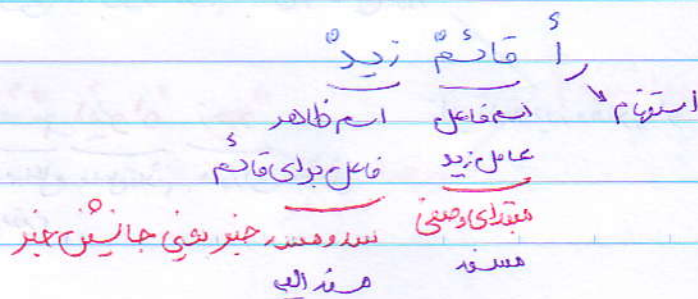 أ قائمٌ زیدٌ
استفهام اسم فاعل اسم ظاهر
عامل زید فاعل برای قائمٌ
مبتدای وصفی سد و مسد خبر یعنی جانشین خبر
مسند مسند الیه